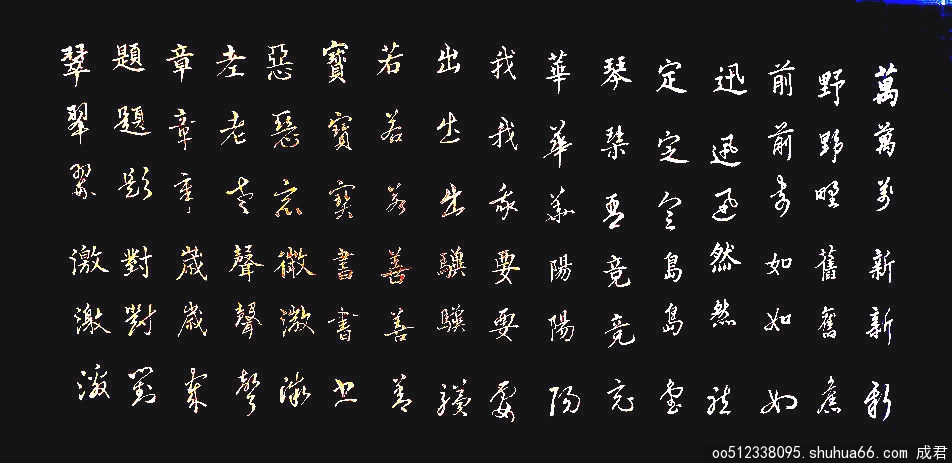 萬萬萬新新新
野野野舊舊舊
前前前如如如
迅迅迅然然然
定定定島島島
琴琴琴竟竟竟
華華華陽陽陽
我我我要要要
出出出驥驥驥
若若若善善善
寶寶寶書書書
惡惡惡微微微
老老老聲聲聲
章章章歲歲歲
題題題對對對
翠翠翠激激激
oo512338095.shuhua66.com 成君